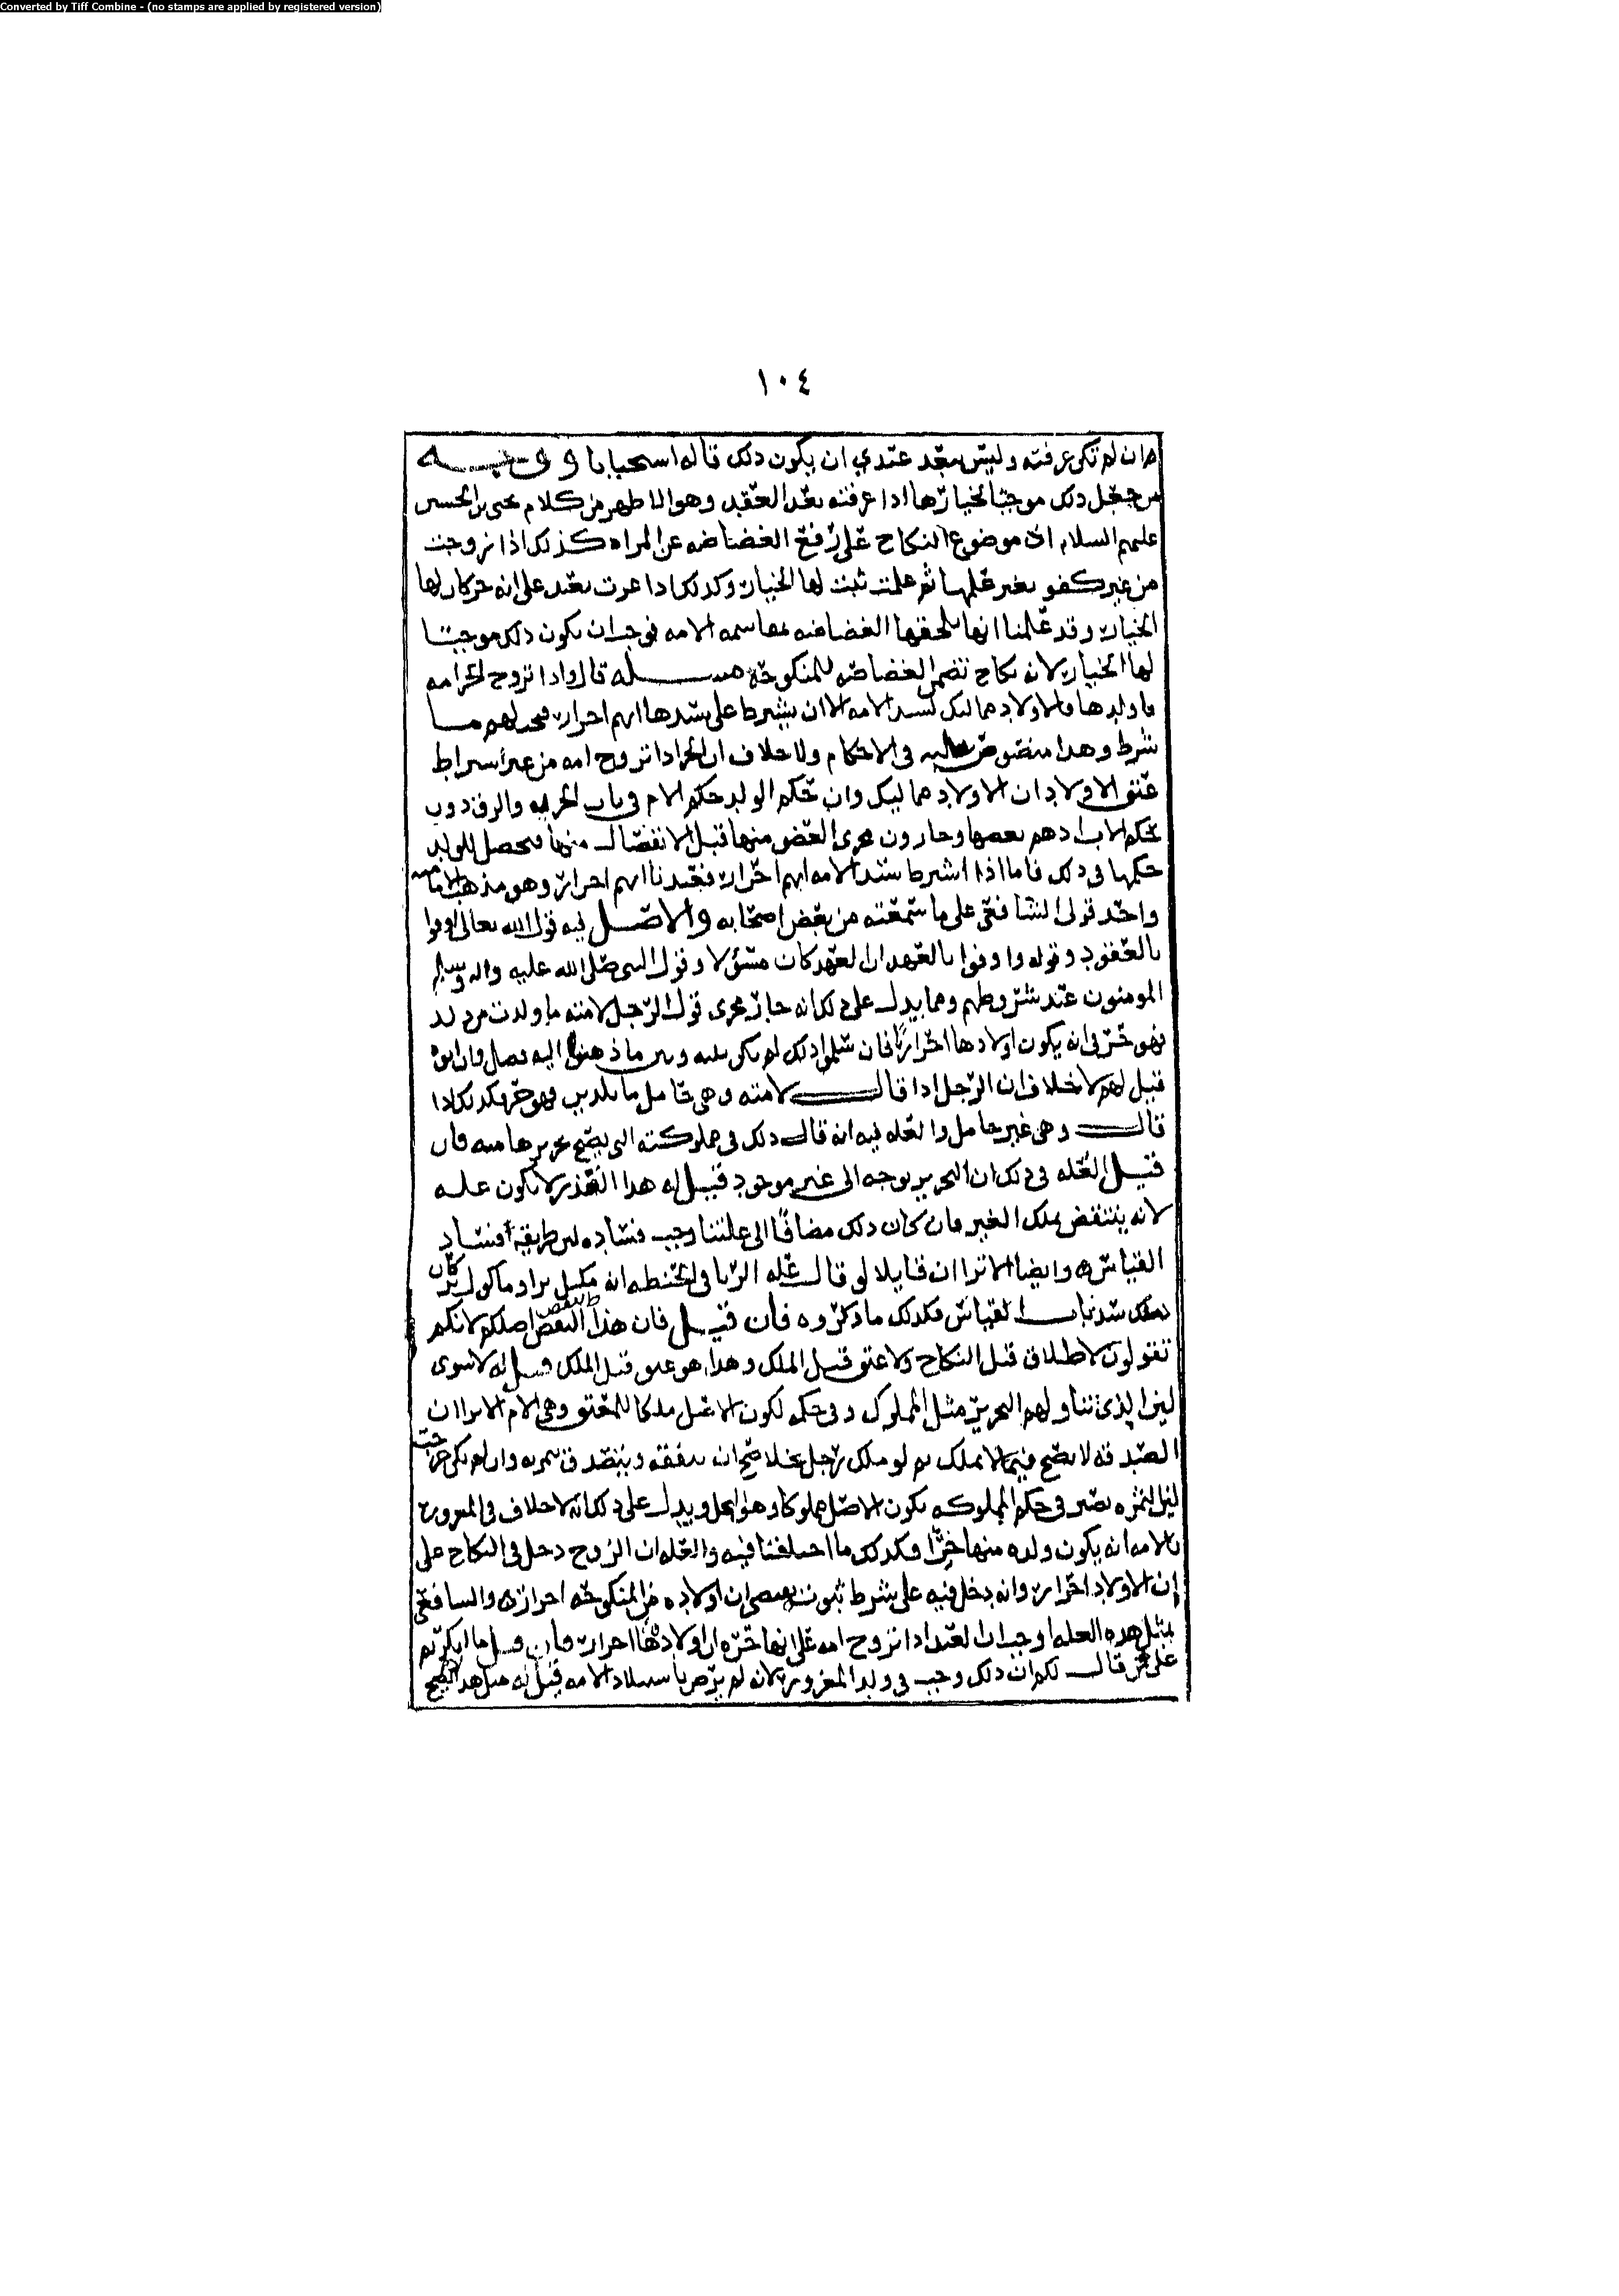 Converted by Tiff Combine - (no stamps are applied by registered version)
١٠٤
وان لم تكن عرفته وليس ببعد عندي ان يكون ذلك قاله استحبابا ووجه
من جعل ذلك موجبا لخيارها اذا عرفته بعد العقد وهو الاظهر من كلام يحيى بن الحسين
عليهم السلام ان موضوع النكاح على رفع الغضاضه عن المراه كذلك اذا تزوجت
من غير كفو بغير علمها ثم علمت ثبت لها الخيار وكذلك اذا غرت بعبد على انه حر كان لها
الخيار وقد علمنا انها يلحقها الغضاضه بمقاسمه الامه فوجب ان يكون ذلك موجبا
لها الخيار لانه نكاح تضمن الغضاضه للمنكوحه مسله قال واذا تزوج الحر امه
فاولدها فالاولاد مماليك لسيد الامه الا ان يشترط على سيدها انهم احرار فيجب لهم ما
شرط وهذا منصوص عليه في الاحكام ولا خلاف ان الحر اذا تزوج امه من غير اشتراط
عتق الاولاد ان الاولاد مماليك وان حكم الولد حكم الام في باب الحريه والرق دون
حكم الاب اذ هم بعضها وجارون مجرى العضو منها قبل الانفصال منها فيحصل للولد
حكمها في ذلك فاما اذا اشترط سيد الامه انهم احرار فعندنا انهم احرار وهو مذهب الاماميه
واحد قولي الشافعي على ما سمعته من بعض اصحابه والاصل فيه قول الله تعالى اوفوا
بالعقود وقوله واوفوا بالعهد ان العهد كان مسؤلا وقول النبي صلى الله عليه واله وسلم
المومنون عند شروطهم ومما يدل على ذلك انه جار مجرى قول الرجل لامته ما ولدت من ولد
فهو حر في انه يكون اولادها احرارا فان سلموا ذلك لم يكن بينه وبين ما ذهبنا اليه فصل وان ابوه
قيل لهم لا خلاف ان الرجل اذا قال لامته وهي حامل ما تلدين فهو حر فكذلك اذا
قال وهي غير حامل والعله فيه انه قال ذلك في مملوكته التي يصح تحريرها منه فان
قيل العله في ذلك ان التحرير توجه الى غير موجود قيل له هذا القدر لا يكون عله
لانه ينتقض بملك الغير فان كان ذلك مضافا الى علتنا وجب فساده لان طريقه افساد
القياس وايضا الا ترا ان قايلا لو قال عله الربا في الحنطه انه مكيل بر او ماكول بر كان
ذلك سد باب القياس فكذلك ما ذكروه فان قيل فان هذا النقض اصلكم لانكم
تقولون لا طلاق قبل النكاح ولا عتق قبل الملك وهذا هو عتق قبل الملك قيل له لا سوى
لان الذي تناولهم التحرير مثل المملوك وفي حكمه لكون الاصل ملكا للمعتق وهي الام الا ترا ان
الصدقه لا تصح فيما لا يملك ثم لو ملك رجل نخلا صح ان ينفقه ويتصدق بثمره وان لم يكن خرجت
لان الثمره تصير في حكم المملوكه بكون الاصل مملوكا وهو النخل ويدل على ذلك انه لا خلاف في المغرور
بالامه انه يكون ولده منها حرا وكذلك ما اختلفنا فيه والعله ان الزوج دخل في النكاح على
ان الاولاد احرار وانه دخل فيه على شرط ثبوت يقتضى ان اولاده من المنكوحه احرار والشافعي
بمثل هذه العله اوجب ان العبد اذا تزوج امه على انها حره ان اولادها احرار فان قيل ما انكرتم
على من قال لكم ان ذلك وجب في ولد المغرور لانه لم يرض باستيلاد الامه قيل له مثل هذا لا يصح